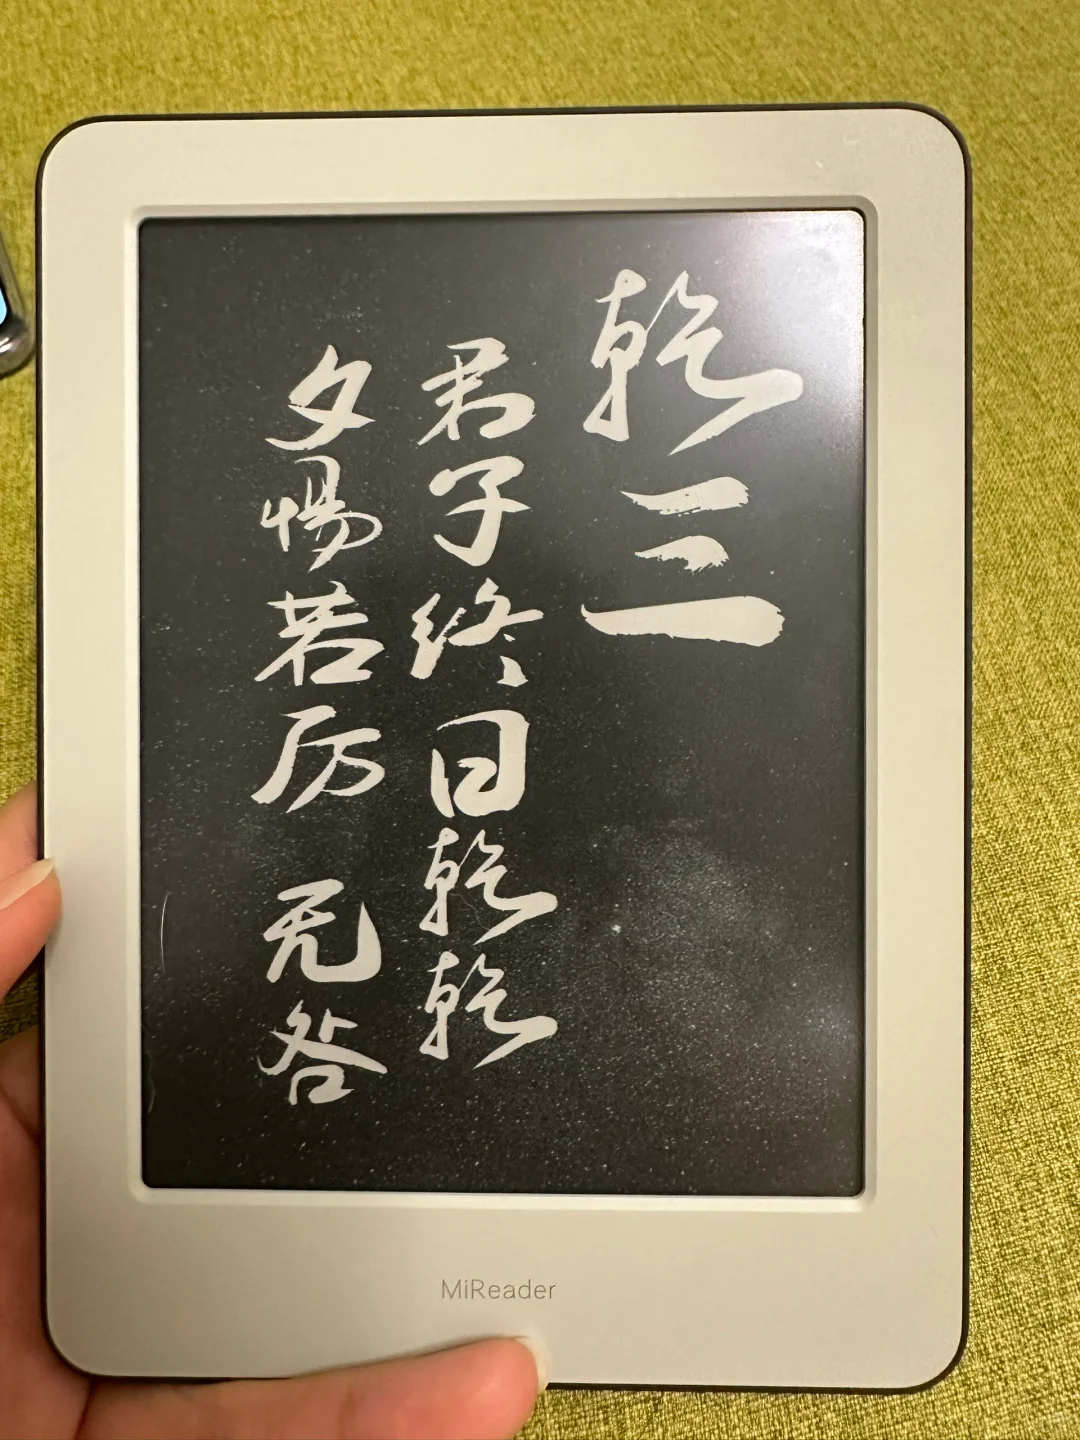 乾三
君子终日乾乾
夕惕若厉 无咎
MiReader